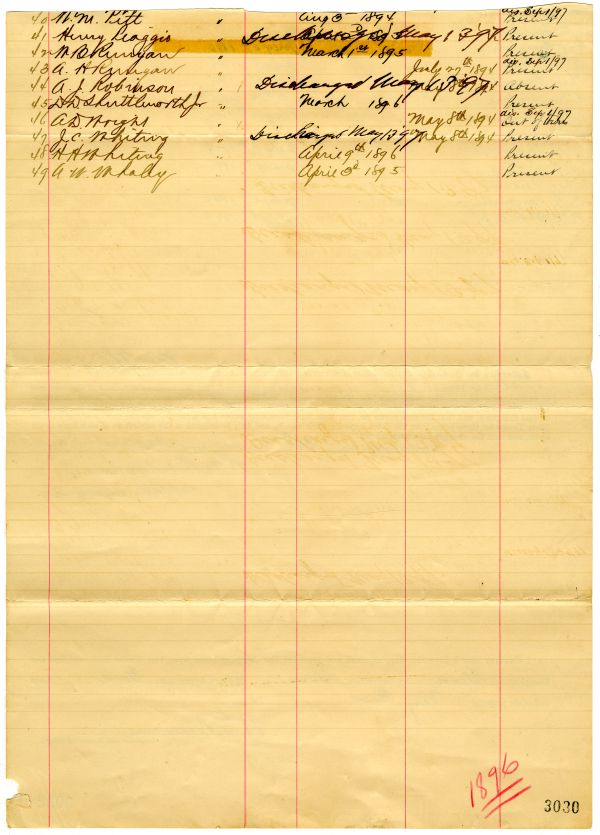 40 W. M. Pitt " Aug 3 1894 dis. Sept 1/97 Present
41 Henry Scaggs " Discharged May 1st 97 Present
42 W B Runyan " March 1st 1895 Present
43 A. H Runyan " July 27th 1894 dis. Sept 1/97 Present
44 A. J. Robinson " Discharged May 1 97 Absent
45 D. D. Shuttleworth Jr " March 1896 Present
46 A. D. Wright " May 8th 1894 dis. Sept 1/97 out of
47 J. C. Whiting Discharged May 1 97 May 8th 1894 Present
48 H H Whiting " April 9th 1896 Present
49 A. W. Whaley " April 3d 1895 Present
1896
3030